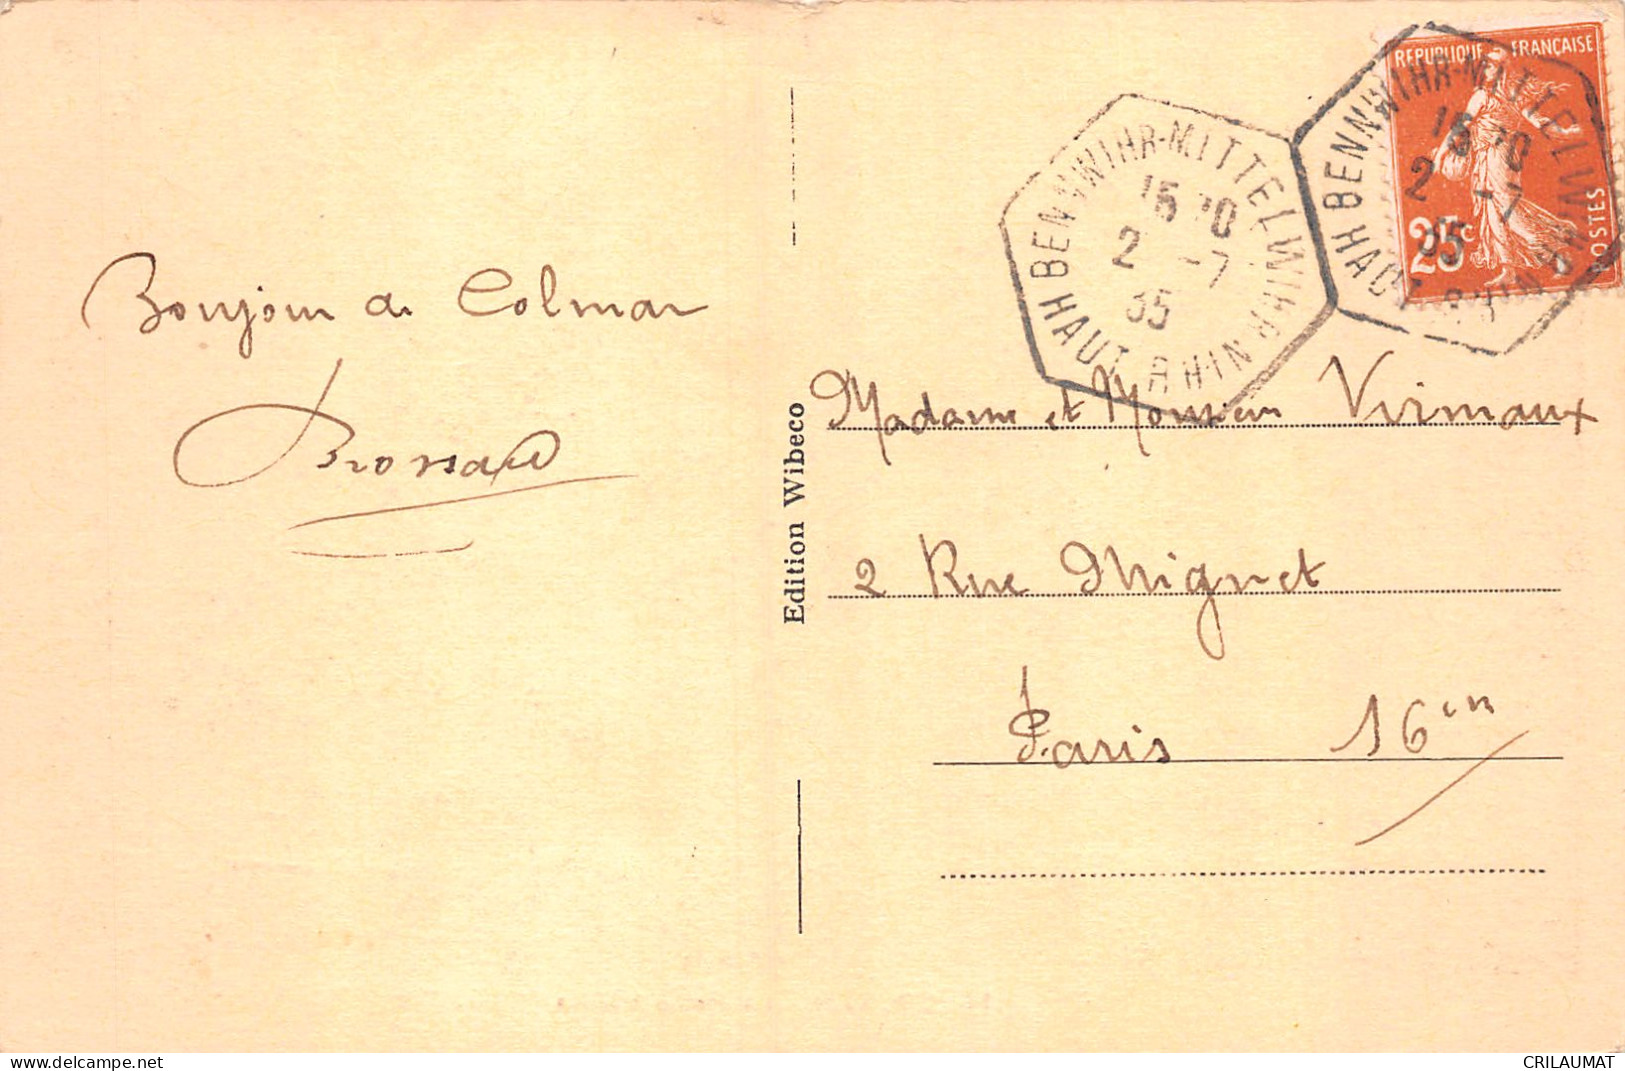 Bonjour de Colmar
Brossard
Edition Wibeco
REPUBLIQUE FRANÇAISE
25c
POSTES
BENNWIHR-MITTELWIHR
HAUT RHIN
2 -7
35
BENNWIHR-MITTELWIHR
HAUT RHIN
2 -7
35
Madame et Monsieur Virmaux
2 Rue Mignet
Paris 16em
delcampe.net
CRILAUMAT